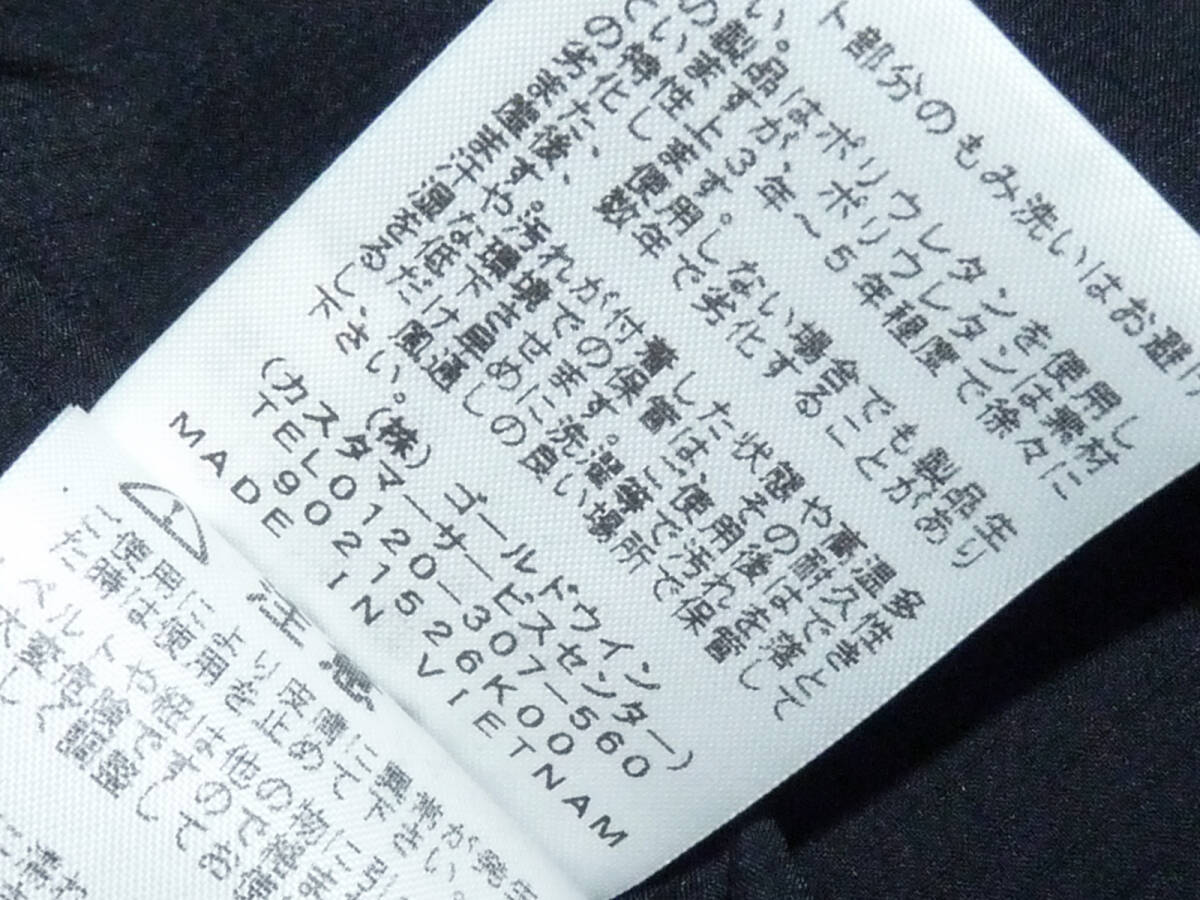 ト部分のもみ洗いはお避け
い。
の製品はポリウレタンを使用し
います が、ポリウレタンは素材
の特性上、3年～5年程度で徐々に
劣化します。
また、使用しない場合でも製品生
産後、数年で劣化することがあり
ます。
汗や汚れが付着した状態や高温多
湿な環境での保管は、その耐久性
を低下させます。使用後はできる
だけ早めに洗濯等で汚れを落とし
風通しの良い場所で保管して
下さい。
(株)ゴールドウイン
(カスタマーサービスセンター)
TEL0120-307-560
9021526K00
MADE IN VIETNAM
注意
ご使用により皮膚に異常が発生
た時は使用を止めて下さい。
ベルトや紐は他の物に
大変危険ですので
しく調整してお使
に濡れ